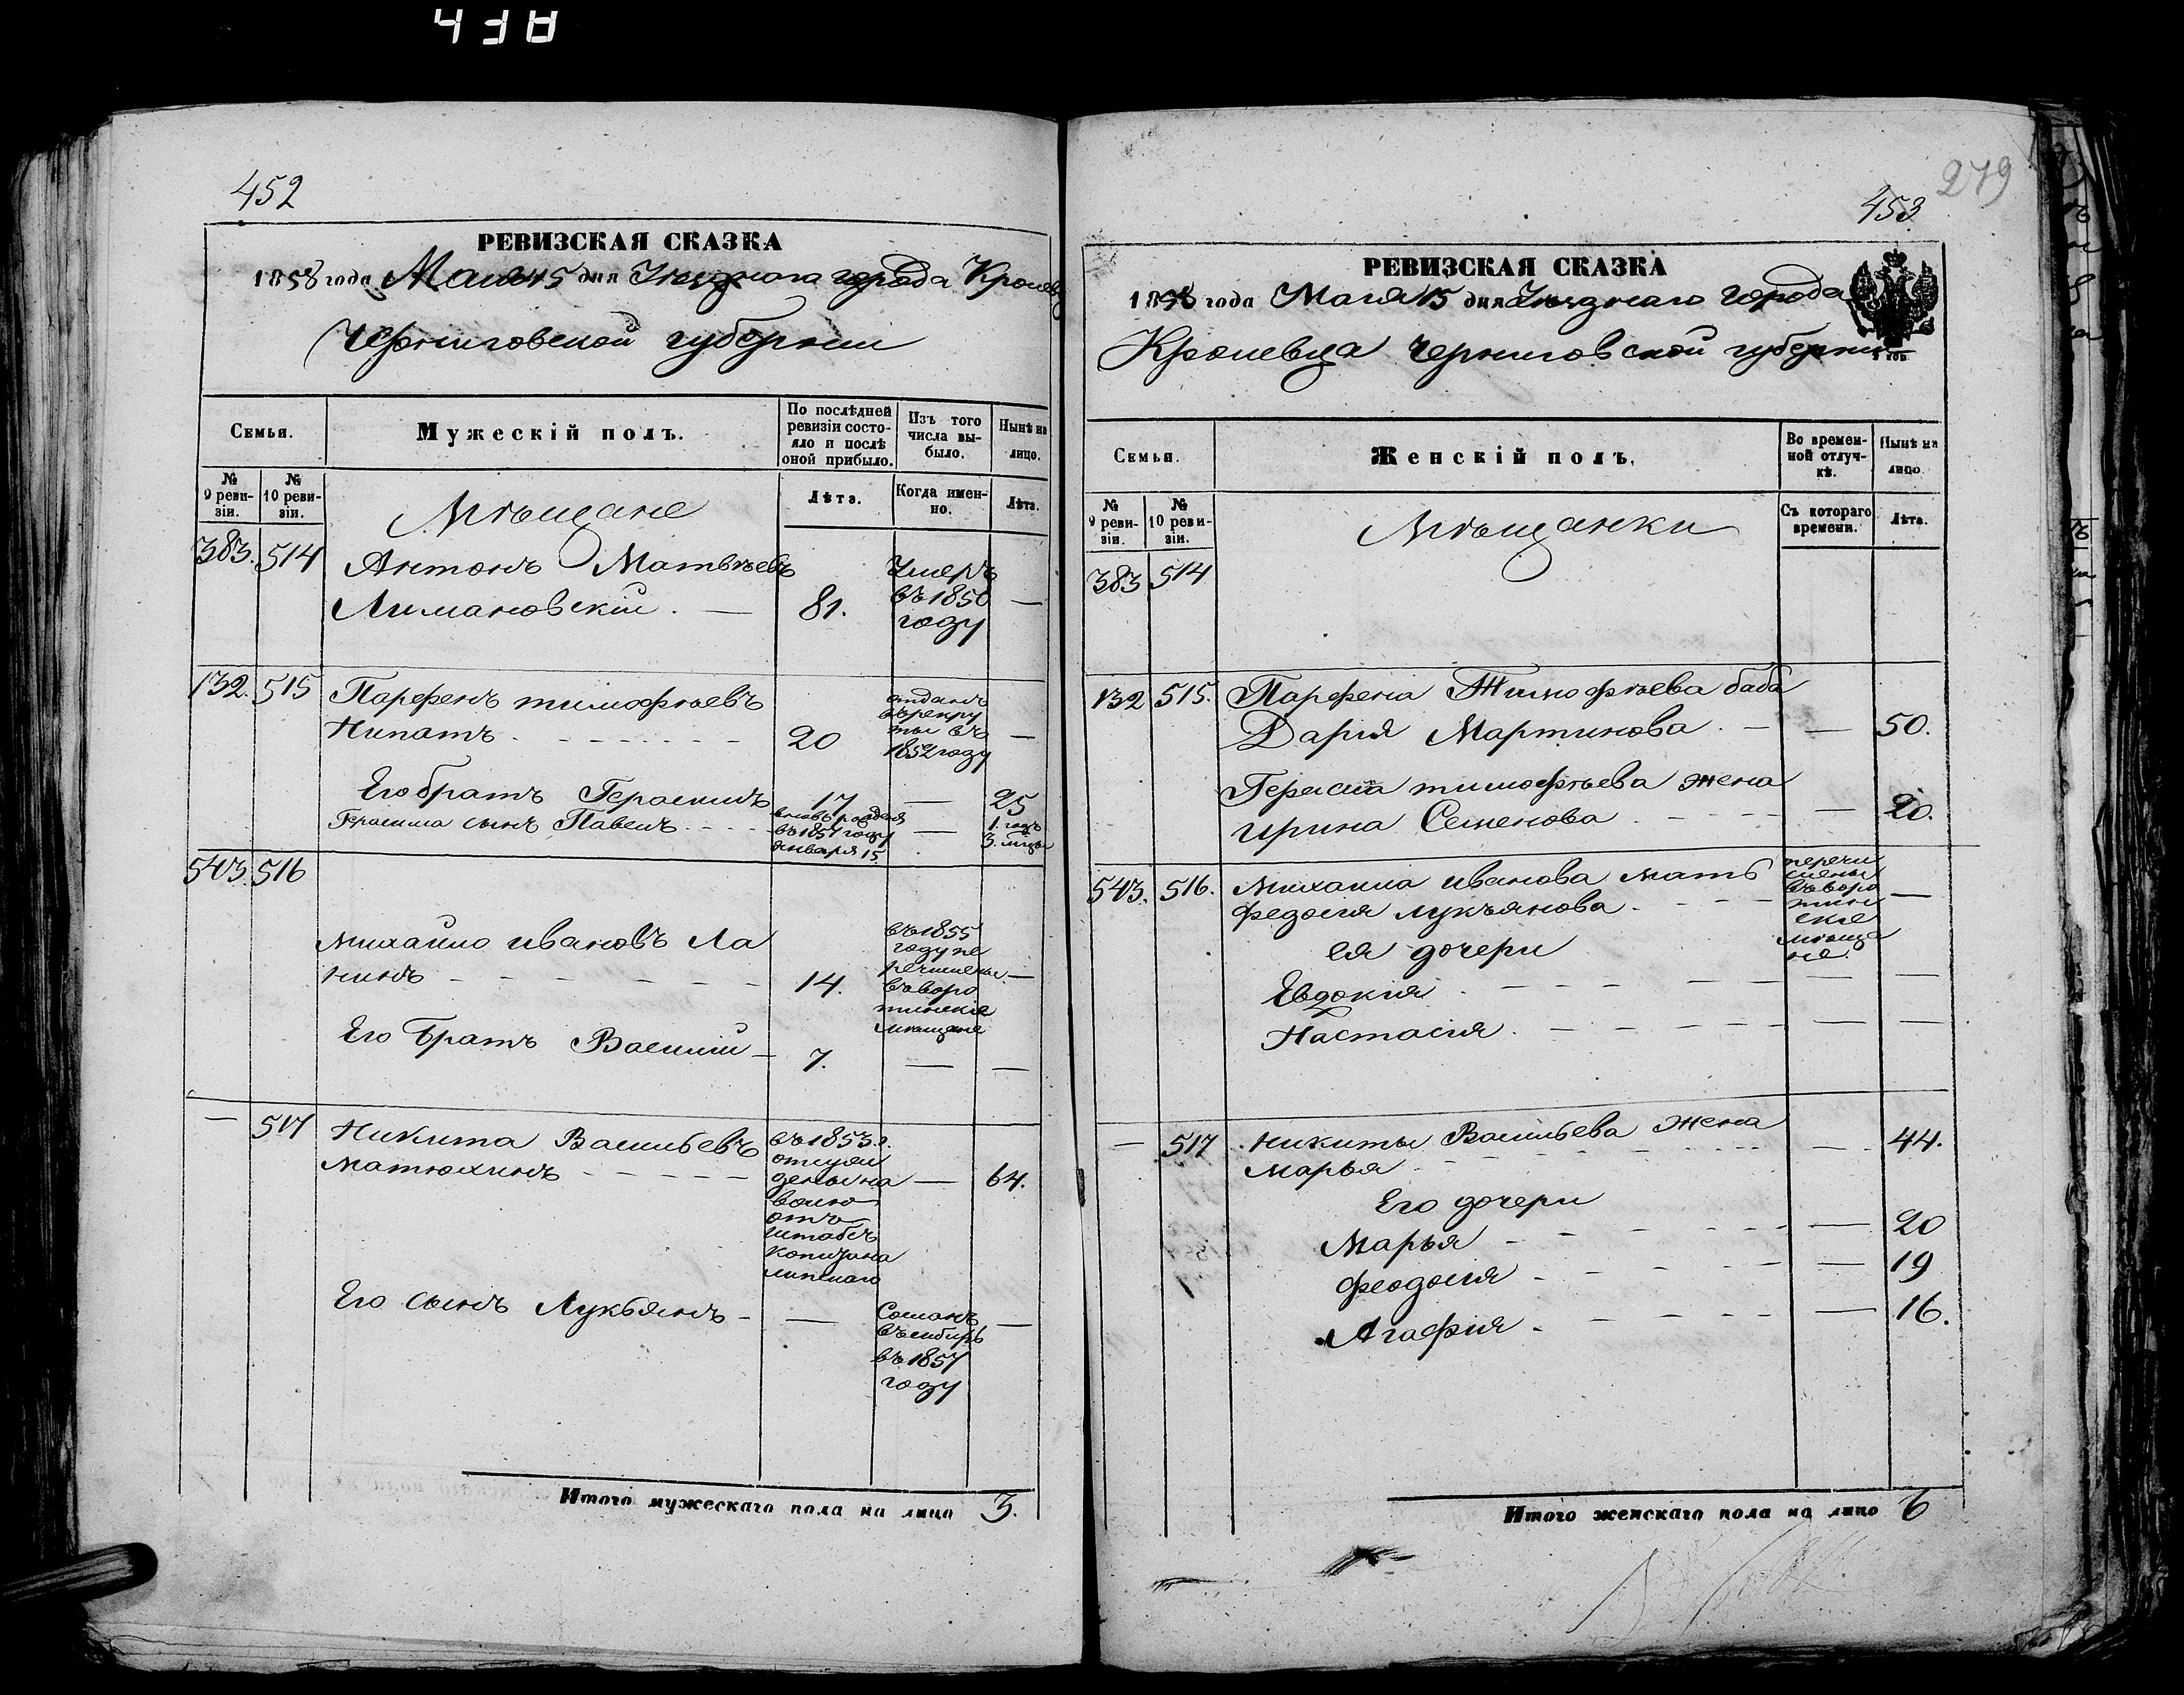 452
РЕВИЗСКАЯ СКАЗКА
1858 года Маія 15 дня Уѣзднаго города Кролев
Черниговской губерніи
Семьи.
Мужескій полъ.
По послѣдней ревизіи состояло и послѣ оной прибыло.
Изъ того числа выбыло.
Нынѣ на лицо.
№ 9 ревизіи.
№ 10 ревизіи.
Мѣщане
Лѣта.
Когда именно.
Лѣта.
383. 514 Антонъ Матвѣевъ
Лимановскій. — 81.
Умеръ
въ 1850
году
—
132. 515 Парфенъ тимофѣевъ
Нипатъ 20
отданъ
въ рекру
ты въ
1852 году
—
Его братъ Герасимъ 17 — 25
Герасима сынъ Павелъ
вновь рожденъ
въ 1857 году
января 15.
—
1. годъ
3. мѣсц
543. 516
Михайло ивановъ Ла
нинъ 14.
въ 1855
году пе
речислены
въ воро
тинскіе
мѣщане
—
Его Братъ Василій — 7. — —
— 517 Никита Васильевъ
Матюхинъ
въ 1853 г.
отпущ
дены на
волю
отъ
штабсъ
капитана
липскаго
— 64.
Его сынъ Лукьянъ - —
Сосланъ
въ сибирь
въ 1857
году
—
Итого мужескаго пола на лицо 3.
279
453
РЕВИЗСКАЯ СКАЗКА
1858 года Маія 15 дня Уѣзднаго города
Кролевца Черниговской губерніи
Семьи.
Женскій полъ.
Во временной отлучкѣ.
Нынѣ на лицо.
№ 9 ревизіи.
№ 10 ревизіи.
Мѣщанки
Съ котораго времени.
Лѣта.
383 514
132 515. Парфена Тимофѣева баба
Дарія Мартинова. — — 50.
Герасима тимофѣева жена
ирина Семенова — 20.
543. 516. Михаила иванова мать
федосія лукъянова
перечи
слены
въ воро
тин
скіе
мѣща
не.
—
ея дочери
Евдокия — —
Настасія — —
— 517 Никиты Васильева жена
марья — 44.
Его дочери
Марья — 20
Феодосія — 19
Агафия — 16.
Итого женскаго пола на лицо 6